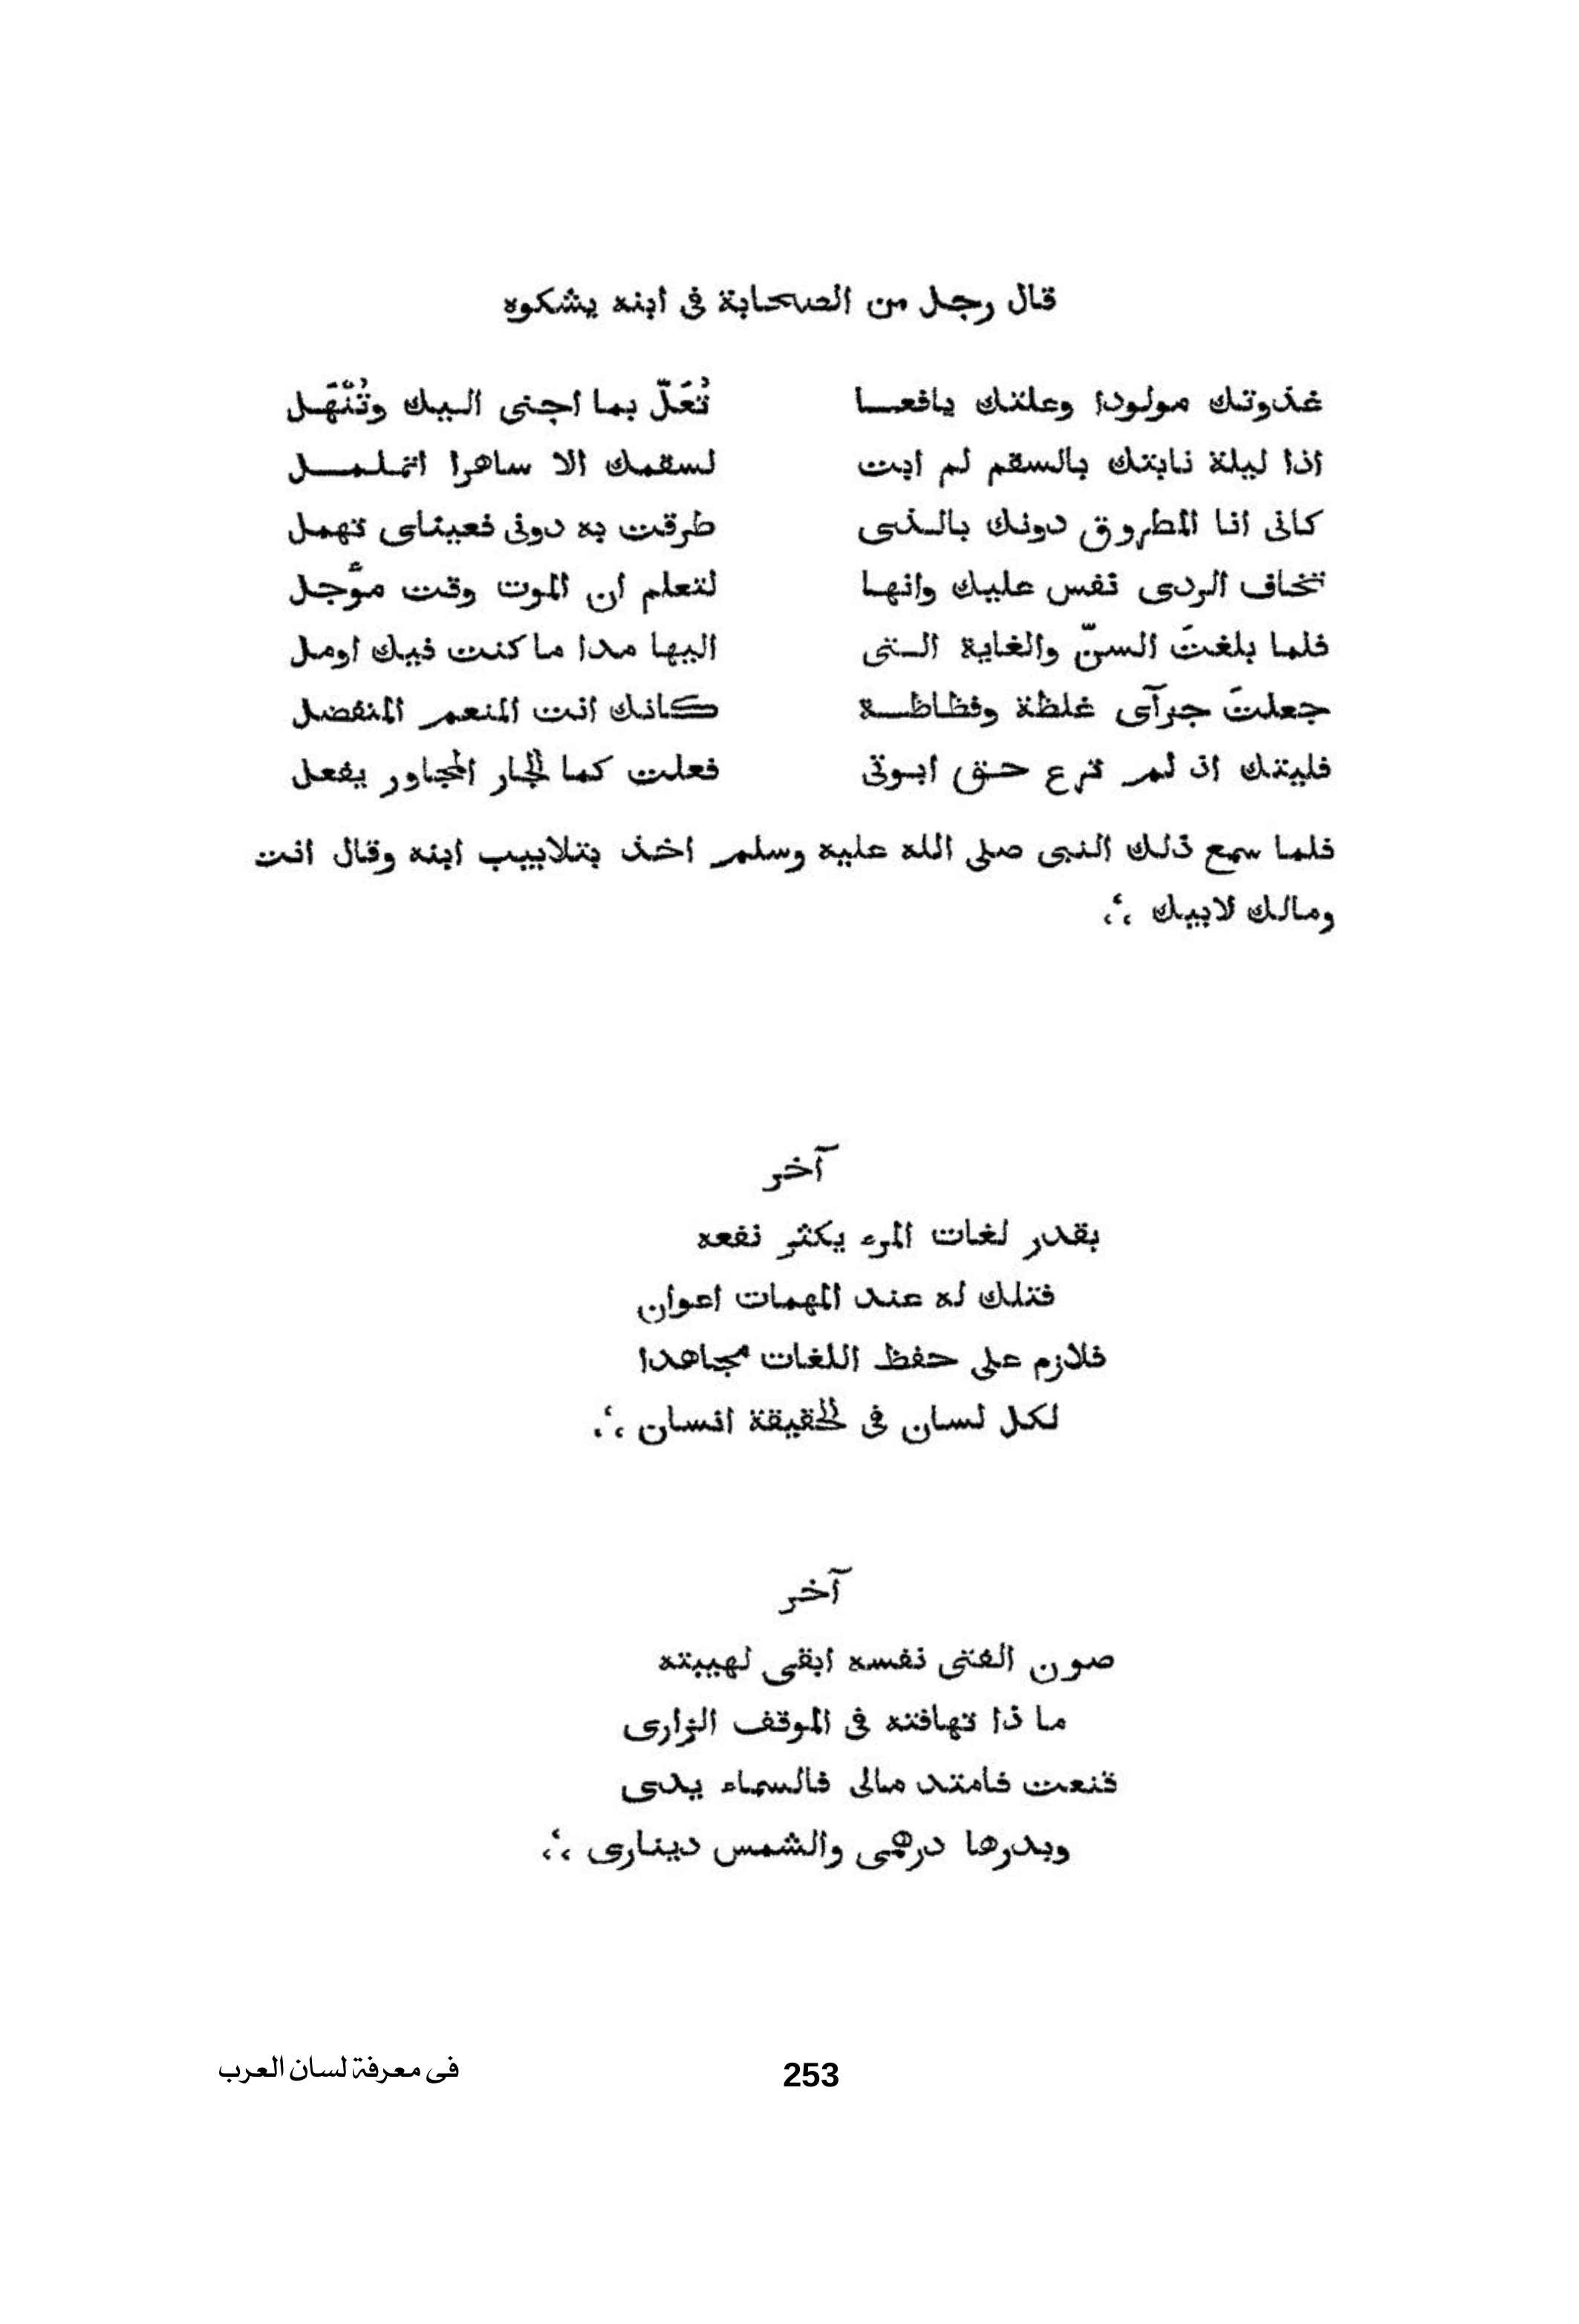 قال رجل من الصحابة فى ابنه يشكوه
غذوتك مولودا وعلتك يافعا تُعَلّ بما اجنى اليك وتُنْهَل
اذا ليلة نابتك بالسقم لم ابت لسقمك الا ساهرا اتململ
كانى انا المطروق دونك بالذى طرقت به دونى فعيناى تهمل
تخاف الردى نفس عليك وانها لتعلم ان الموت وقت موَّجل
فلما بلغتَ السنّ والغاية التى اليها مدا ما كنت فيك اومل
جعلتَ جرآى غلظة وفظاظة كانك انت المنعم المنفضل
فليتك اذ لم ترع حق ابوتى فعلت كما الجار المجاور يفعل
فلما سمع ذلك النبى صلى الله عليه وسلم اخذ بتلابيب ابنه وقال انت
ومالك لابيك ؞
آخر
بقدر لغات المرء يكثر نفعه
فتلك له عند المهمات اعوان
فلازم على حفظ اللغات مجاهدا
لكل لسان فى الحقيقة انسان ؞
آخر
صون الفتى نفسه ابقى لهيبته
ما ذا تهافته فى الموقف الزارى
قنعت فامتد مالى فالسماء يدى
وبدرها درهمى والشمس دينارى ؞
فى معرفة لسان العرب 253